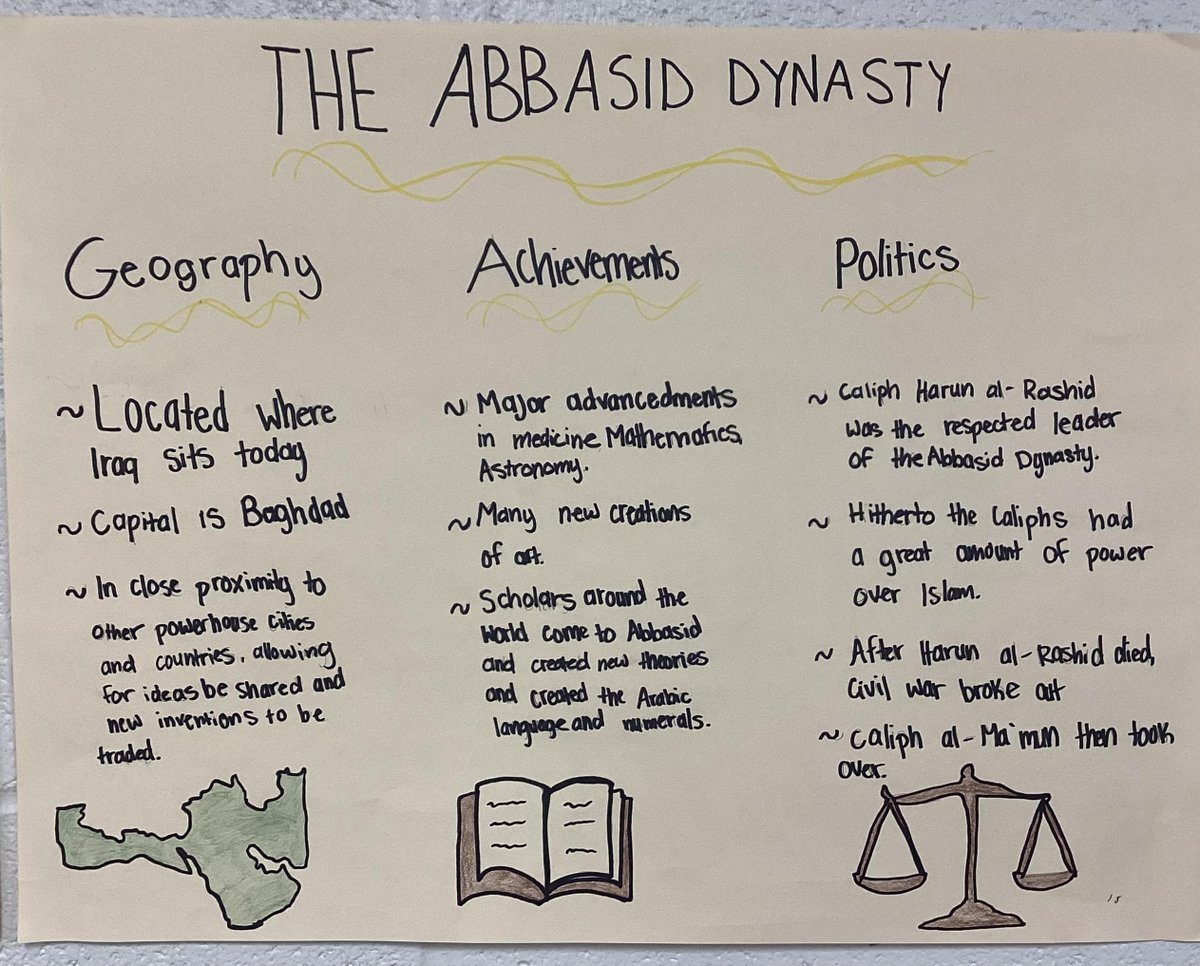 THE ABBASID DYNASTY
Geography
~ Located where
Iraq sits today
~ Capital is Baghdad
~ In close proximity to
other powerhouse cities
and countries, allowing
for ideas be shared and
new inventions to be
traded.
Achievements
~ Major advancedments
in medicine Mathematics,
Astronomy.
~ Many new creations
of art.
~ Scholars around the
World come to Abbasid
and created new theories
and created the Arabic
language and numerals.
Politics
~ Caliph Harun al-Rashid
was the respected leader
of the Abbasid Dynasty.
~ Hitherto the Caliphs had
a great amount of power
over Islam.
~ After Harun al-Rashid died,
Civil war broke out
~ Caliph al-Ma'mun then took
over.